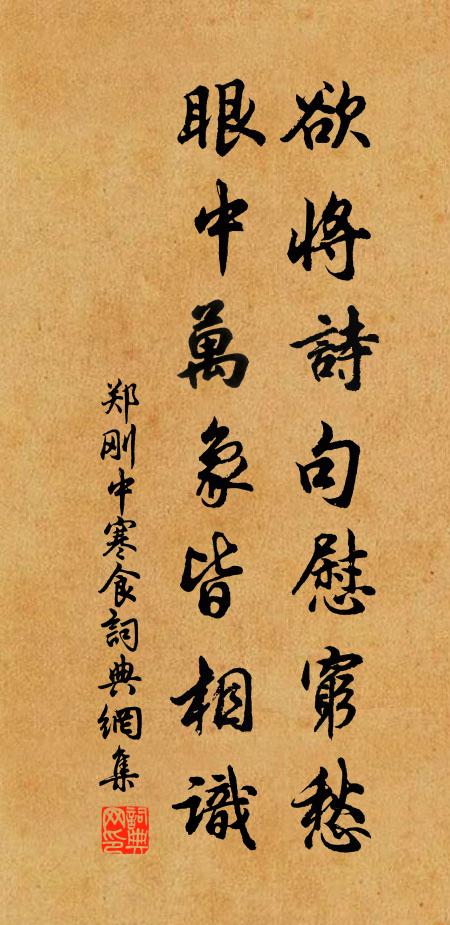 欲將詩句慰窮愁
眼中萬象皆相識
郑刚中寒食詞典網集
詞典
网印